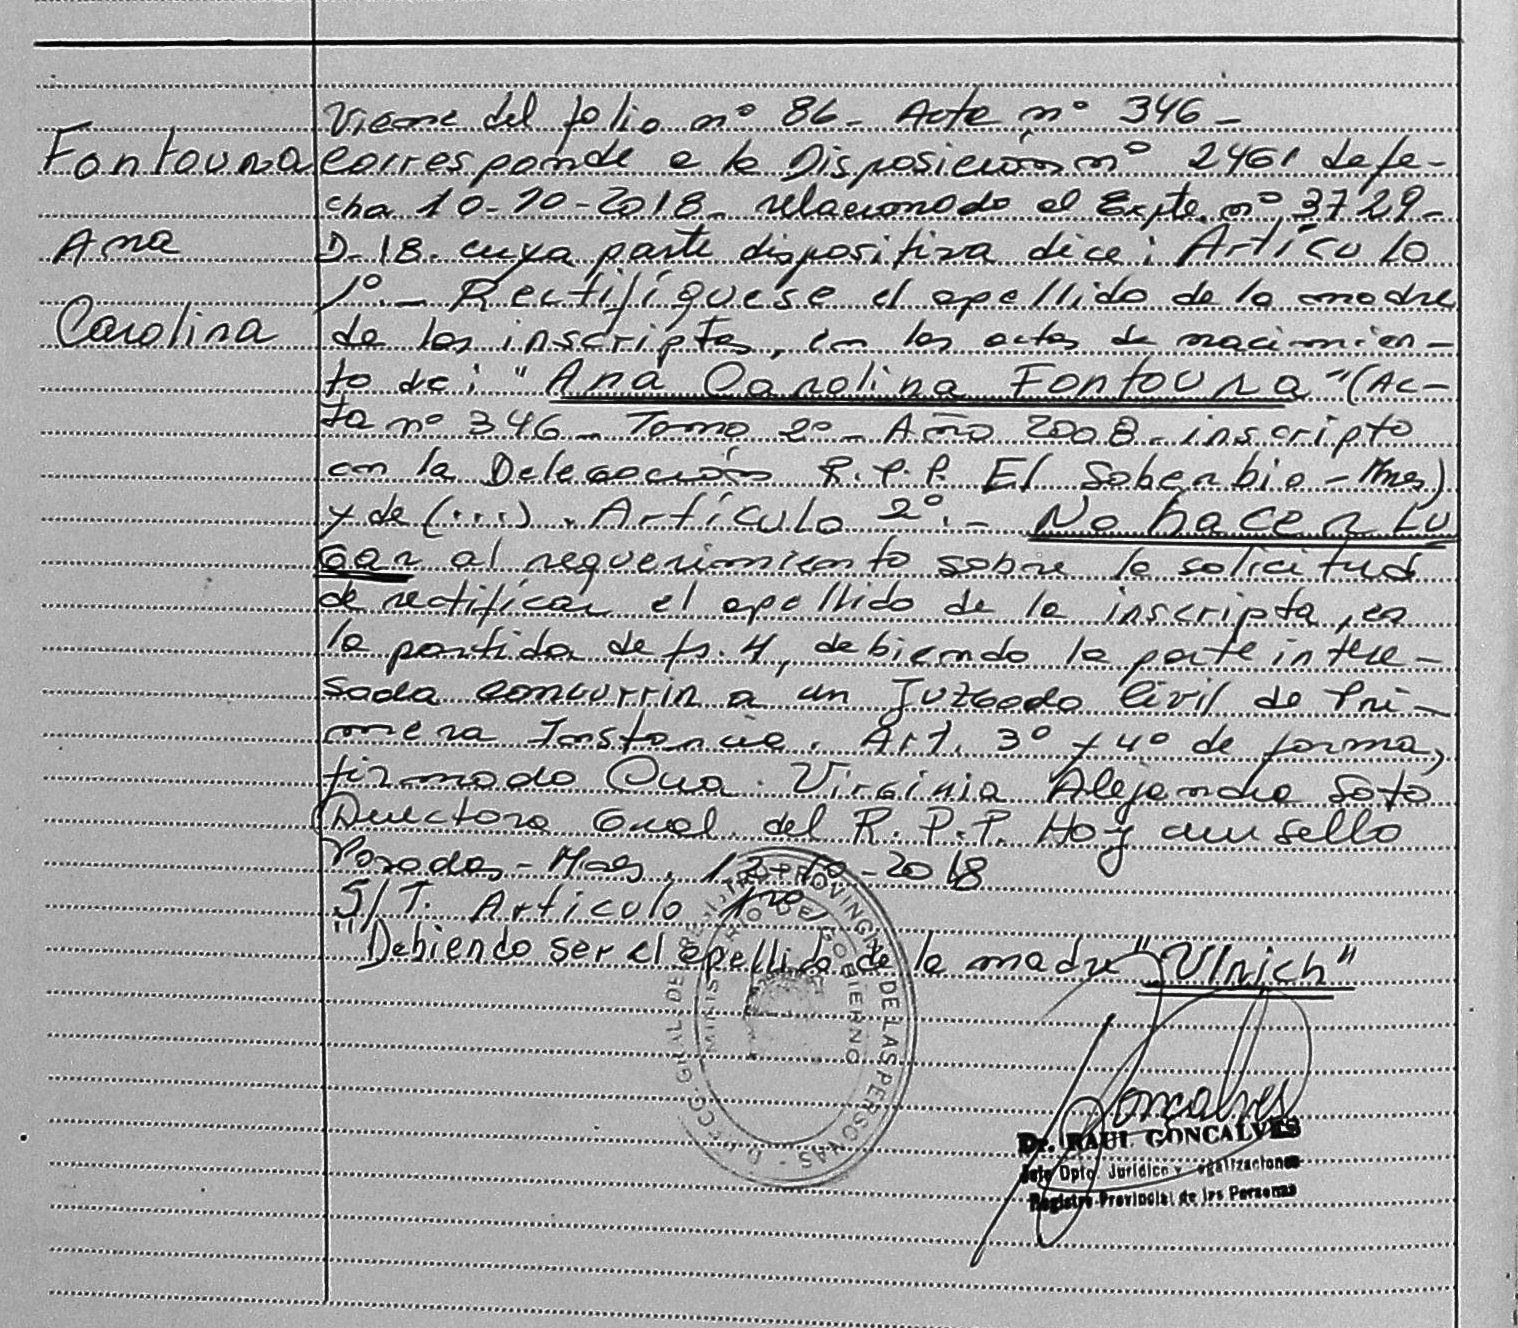 Viene del folio nº 86 - Acta nº 346 -
Fontoura
Corresponde a la Disposición nº 2461 de fe-
cha 10-10-2018. relacionado al Expte. nº 3729-
Ana
D-18. cuya parte dispositiva dice: Artículo
1º.- Rectifíquese el apellido de la madre
Carolina
de los inscriptos, en las actas de nacimien-
to de: "Ana Carolina Fontoura" (Ac-
ta nº 346 - Tomo 2º - Año 2008 - inscripto
en la Delegación R.P.P. El Soberbio - Mnes)
y de (...). Artículo 2º.- No hacer Lu
gar al requerimiento sobre la solicitud
de rectificar el apellido de la inscripta, en
la partida de fs. 4, debiendo la parte intere-
sada concurrir a un Juzgado Civil de Pri-
mera Instancia. Art. 3º y 4º de forma,
firmado Virginia Alejandra Soto
Directora Gral. del R.P.P. Hoy un sello
Posadas - Mnes, 12-10-2018
S/T. Artículo 1ro
"Debiendo ser el apellido de la madre "Ulrich"
DIRECC. GRAL. DEL REGISTRO PROVINCIAL DE LAS PERSONAS
MINISTERIO DE GOBIERNO
Goncalves
Dr. RAUL GONCALVES
Jefe Dpto. Jurídico y Legalizaciones
Registro Provincial de las Personas